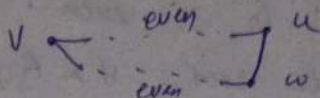 even u
v
even w